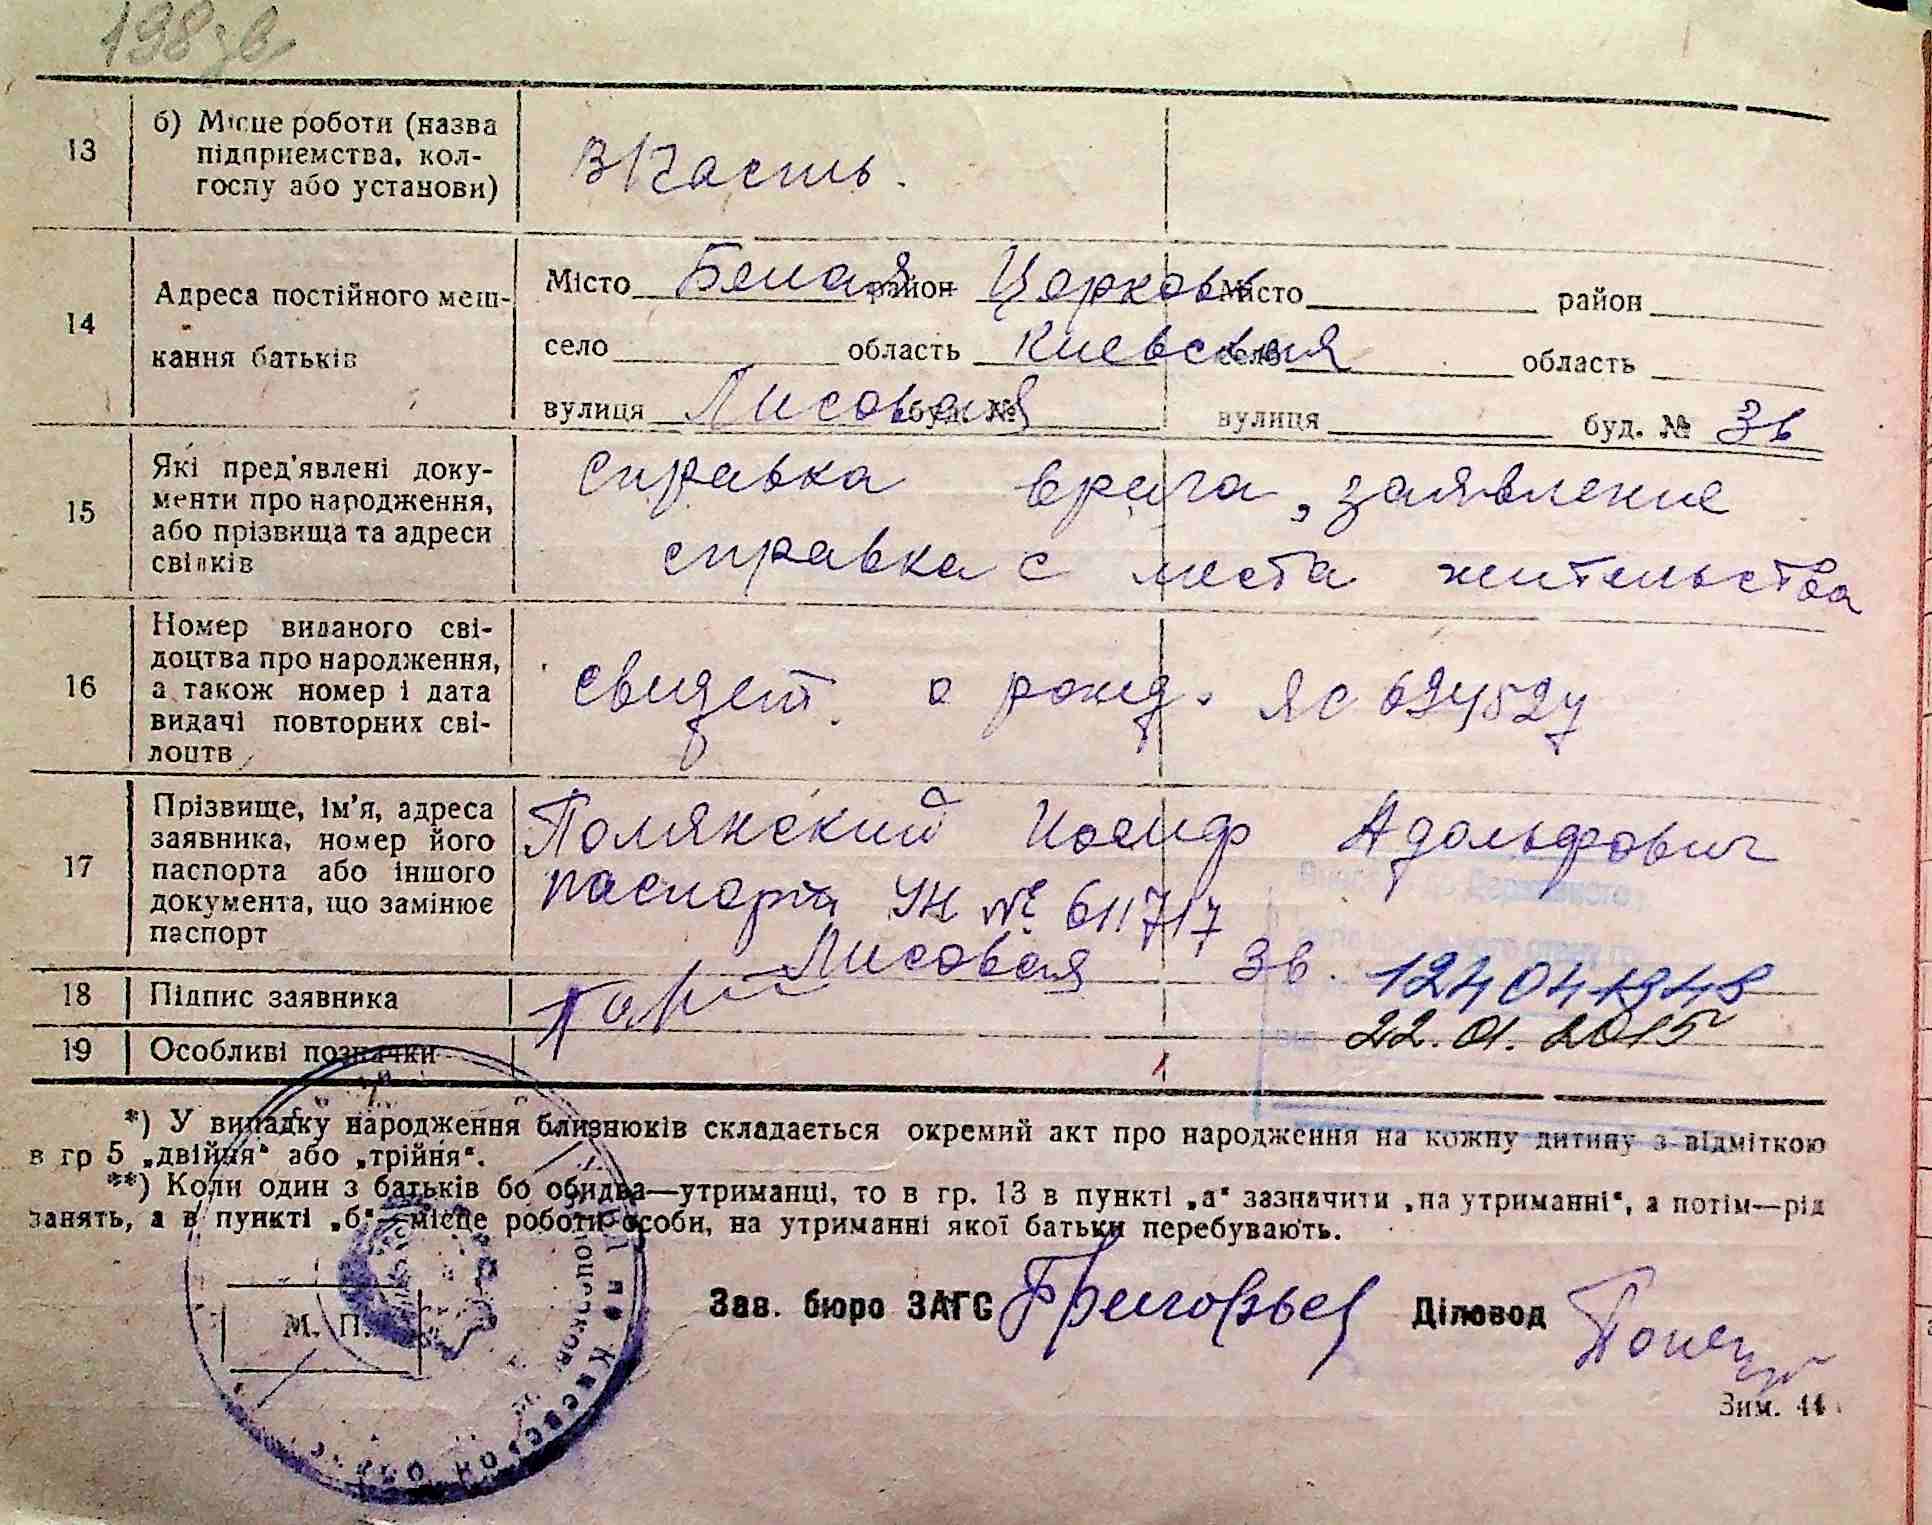 198зв
13
б) Місце роботи (назва
підприємства, кол-
госпу або установи)
В/Часть.
14
Адреса постійного меш-
кання батьків
Місто Белая район Церковь Місто район
село область Киевская село область
вулиця Лисовая буд. № вулиця буд. № 3в
15
Які пред'явлені доку-
менти про народження,
або прізвища та адреси
свідків
справка врача, заявление
справка с места жительства
16
Номер виданого сві-
доцтва про народження,
а також номер і дата
видачі повторних сві-
доцтв
свидет. о рожд. ЯС 624527
17
Прізвище, ім'я, адреса
заявника, номер його
паспорта або іншого
документа, що замінює
паспорт
Полянский Иосиф Адольфович
паспорт УН № 611717
Лисовая 3в.
18
Підпис заявника
19
Особливі позначки
22.01.2015
*) У випадку народження близнюків складається окремий акт про народження на кожну дитину з відміткою
в гр 5 „двійня“ або „трійня“.
**) Коли один з батьків бо обидва—утриманці, то в гр. 13 в пункті „а“ зазначити „на утриманні“, а потім—рід
занять, а в пункті „б“—місце роботи особи, на утриманні якої батьки перебувають.
М. П.
Зав. бюро ЗАГС Григорьев Діловод
Зим. 44